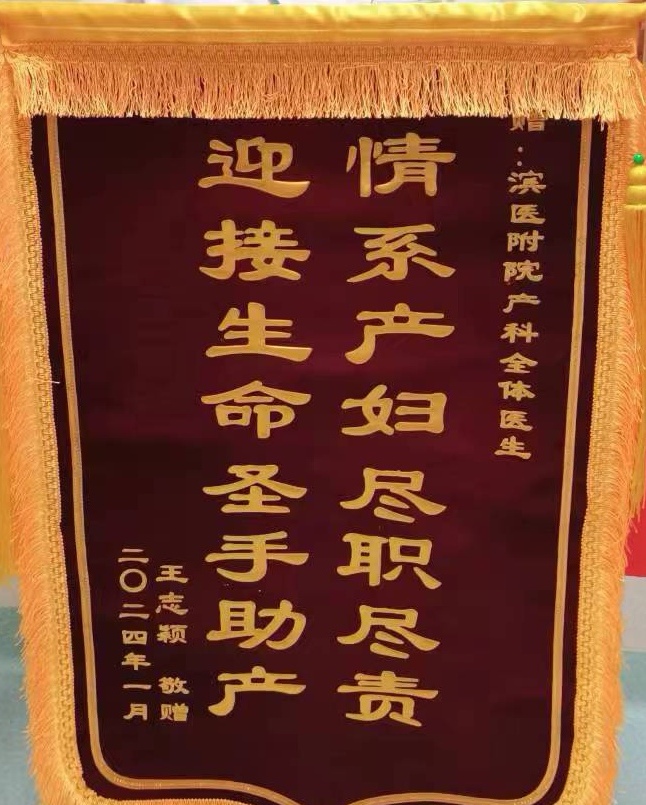 赠：滨医附院产科全体医生
情系产妇尽职尽责
迎接生命圣手助产
王志颖 敬赠
二〇二四年一月